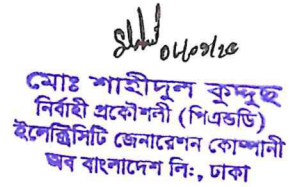 ০১/০৭/২৫
মোঃ শাহীদুল কুদ্দুছ
নির্বাহী প্রকৌশলী (পিএন্ডডি)
ইলেক্ট্রিসিটি জেনারেশন কোম্পানী
অব বাংলাদেশ লিঃ, ঢাকা